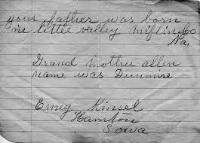 your father was born
in little valley Mifflin Co
Pa,
Grand mother allen
name was Dunmire
Emry Kinsel
Hamton
Iowa